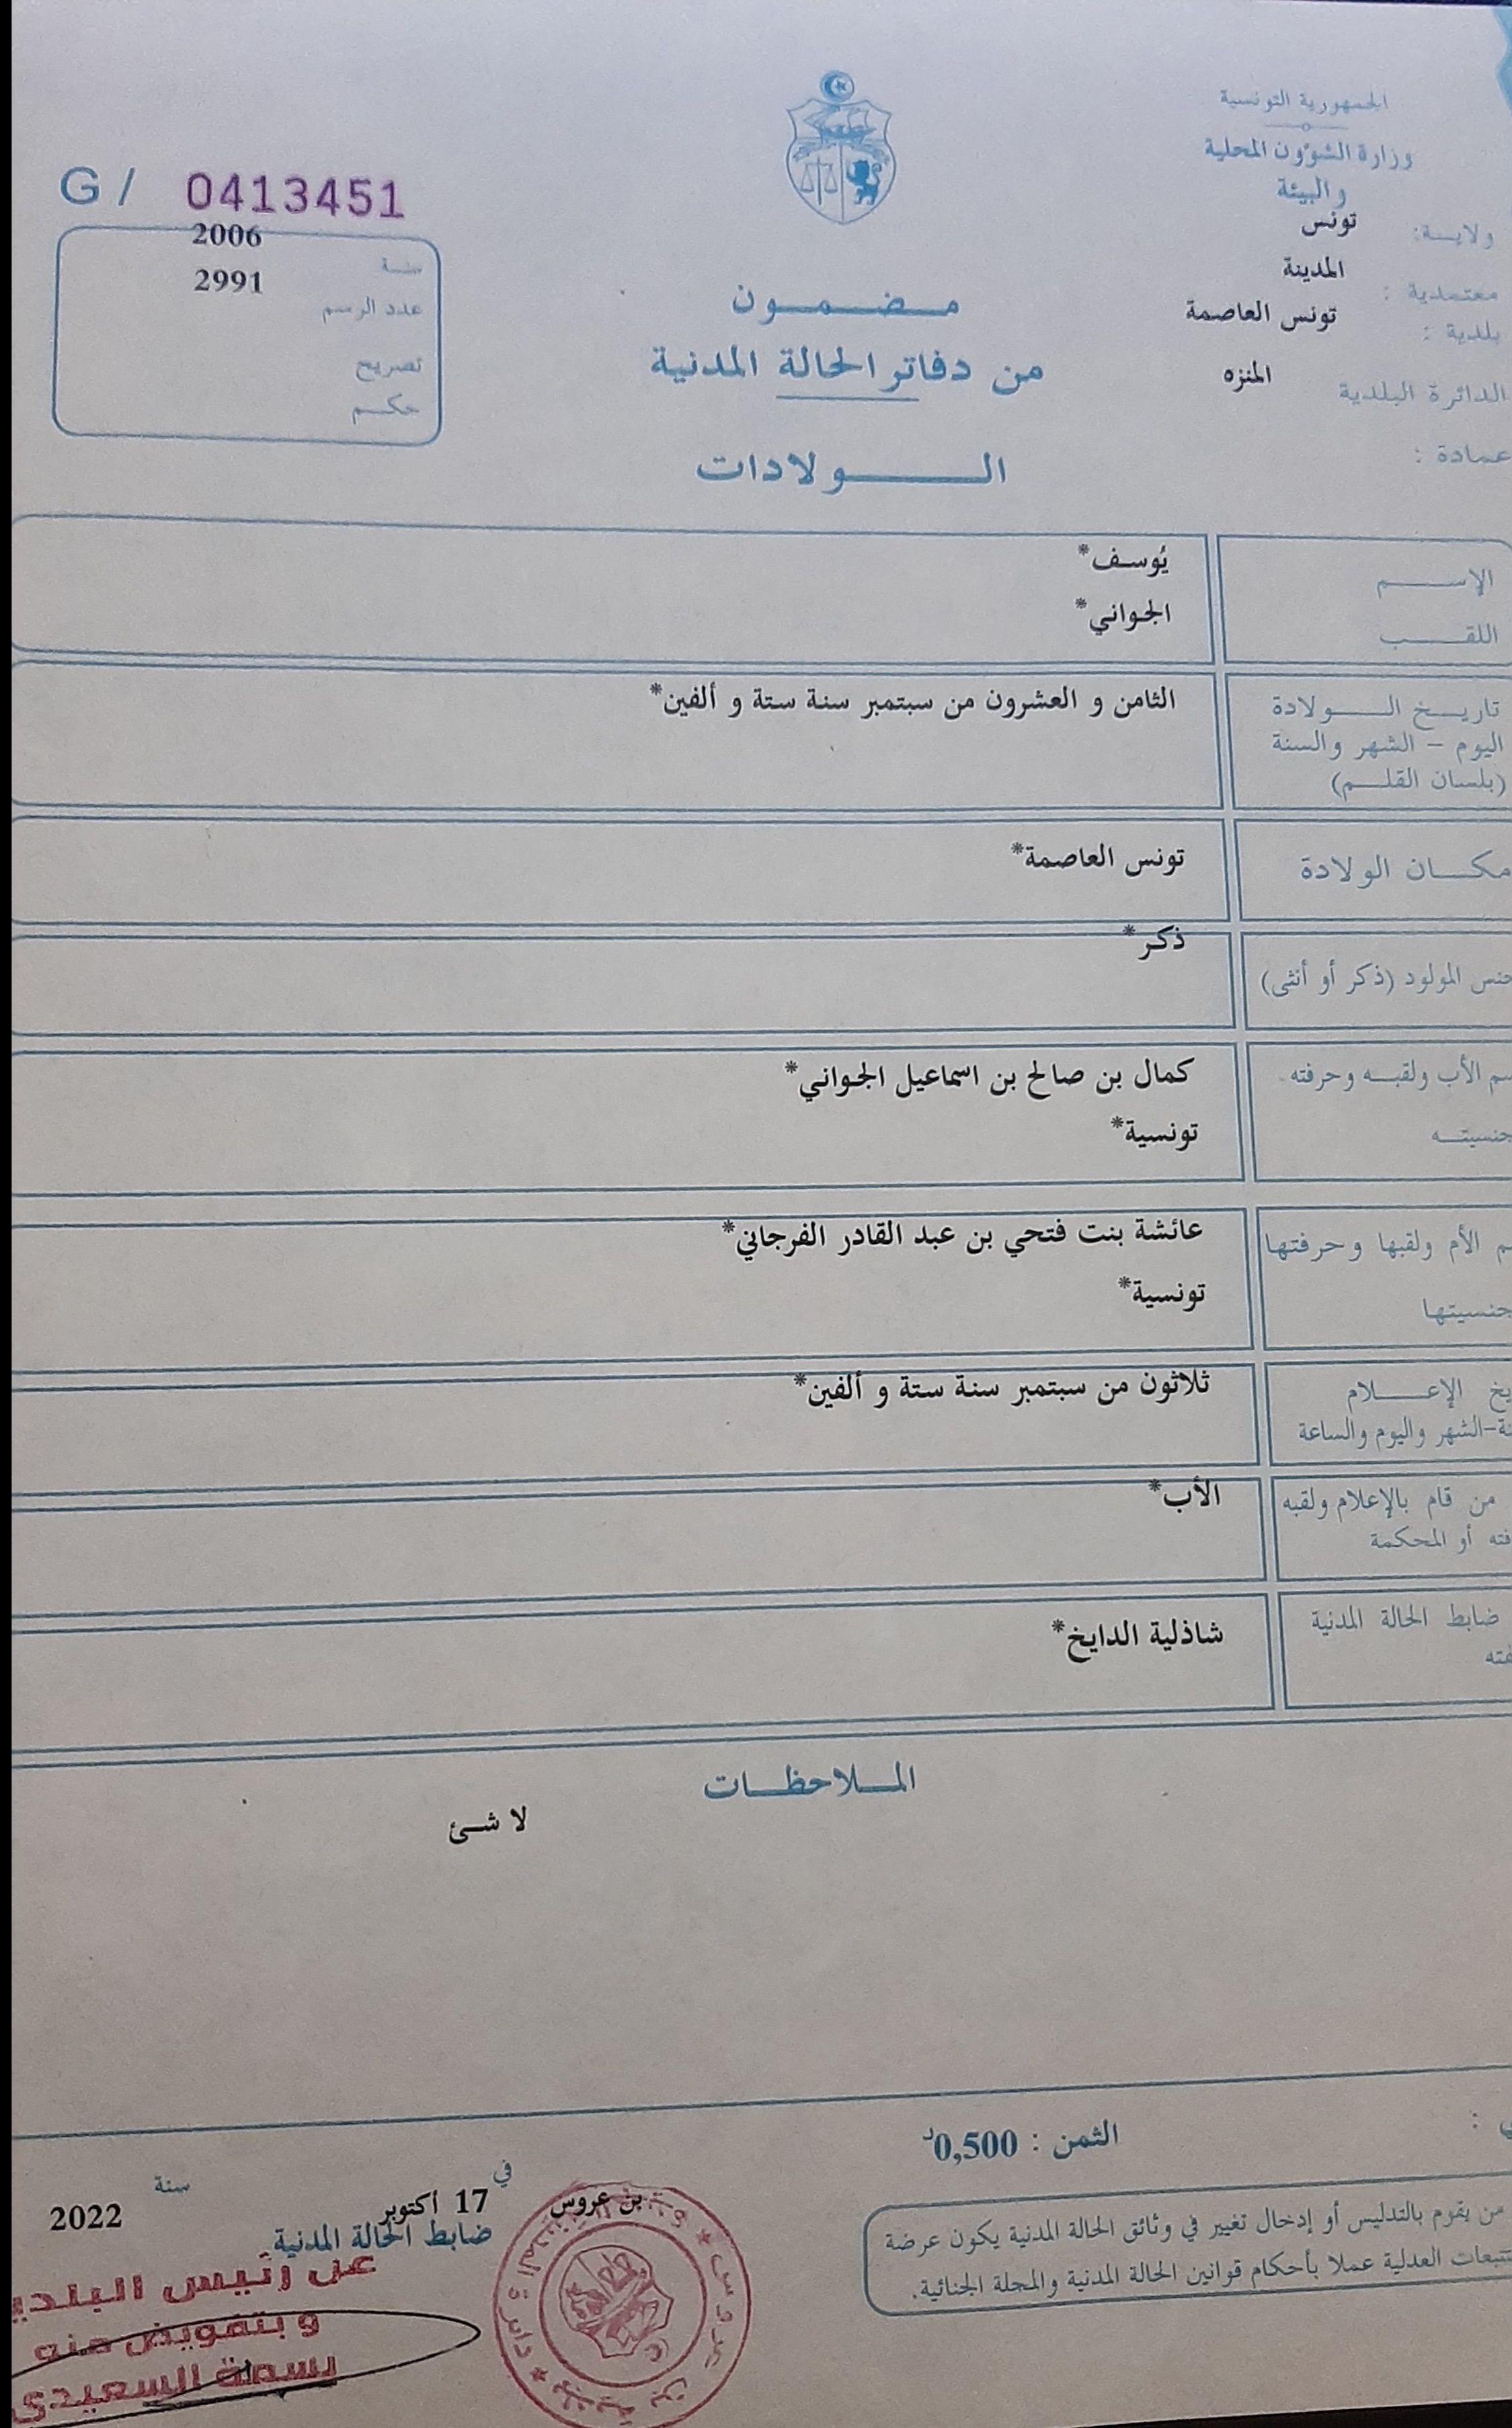 الجمهورية التونسية
وزارة الشؤون المحلية
والبيئة
ولايــة: تونس
معتمدية : المدينة
بلدية : تونس العاصمة
الدائرة البلدية المنزه
عمادة :
G / 0413451
سنة 2006
عدد الرسم 2991
تصريح
حكم
مضمون
من دفاتر الحالة المدنية
الولادات
الإسم يُوسف*
اللقب الجواني*
تاريخ الولادة الثامن و العشرون من سبتمبر سنة ستة و ألفين*
اليوم – الشهر والسنة
(بلسان القلم)
مكان الولادة تونس العاصمة*
جنس المولود (ذكر أو أنثى) ذكر*
سم الأب ولقبه وحرفته كمال بن صالح بن اسماعيل الجواني*
جنسيته تونسية*
م الأم ولقبها وحرفتها عائشة بنت فتحي بن عبد القادر الفرجاني*
جنسيتها تونسية*
يخ الإعلام ثلاثون من سبتمبر سنة ستة و ألفين*
نة-الشهر واليوم والساعة
من قام بالإعلام ولقبه الأب*
فته أو المحكمة
ضابط الحالة المدنية شاذلية الدايخ*
فته
الملاحظات
لا شئ
الثمن : 0,500د
بن عروس في 17 أكتوبر سنة 2022
ضابط الحالة المدنية
من يقوم بالتدليس أو إدخال تغيير في وثائق الحالة المدنية يكون عرضة
تتبعات العدلية عملا بأحكام قوانين الحالة المدنية والمجلة الجنائية.
عن رئيس البلدي
وبتفويض منه
بسمة السعيدي